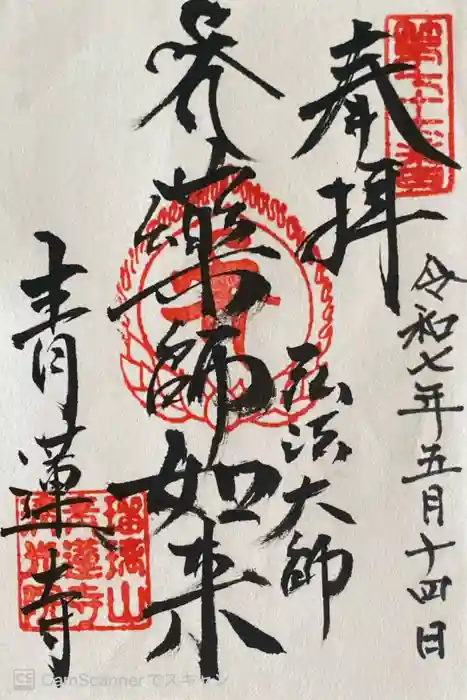 奉拝
令和七年五月十四日
弘法大師
藥師如来
青蓮寺
瑠璃山
青蓮寺
CS CamScanner でスキャン